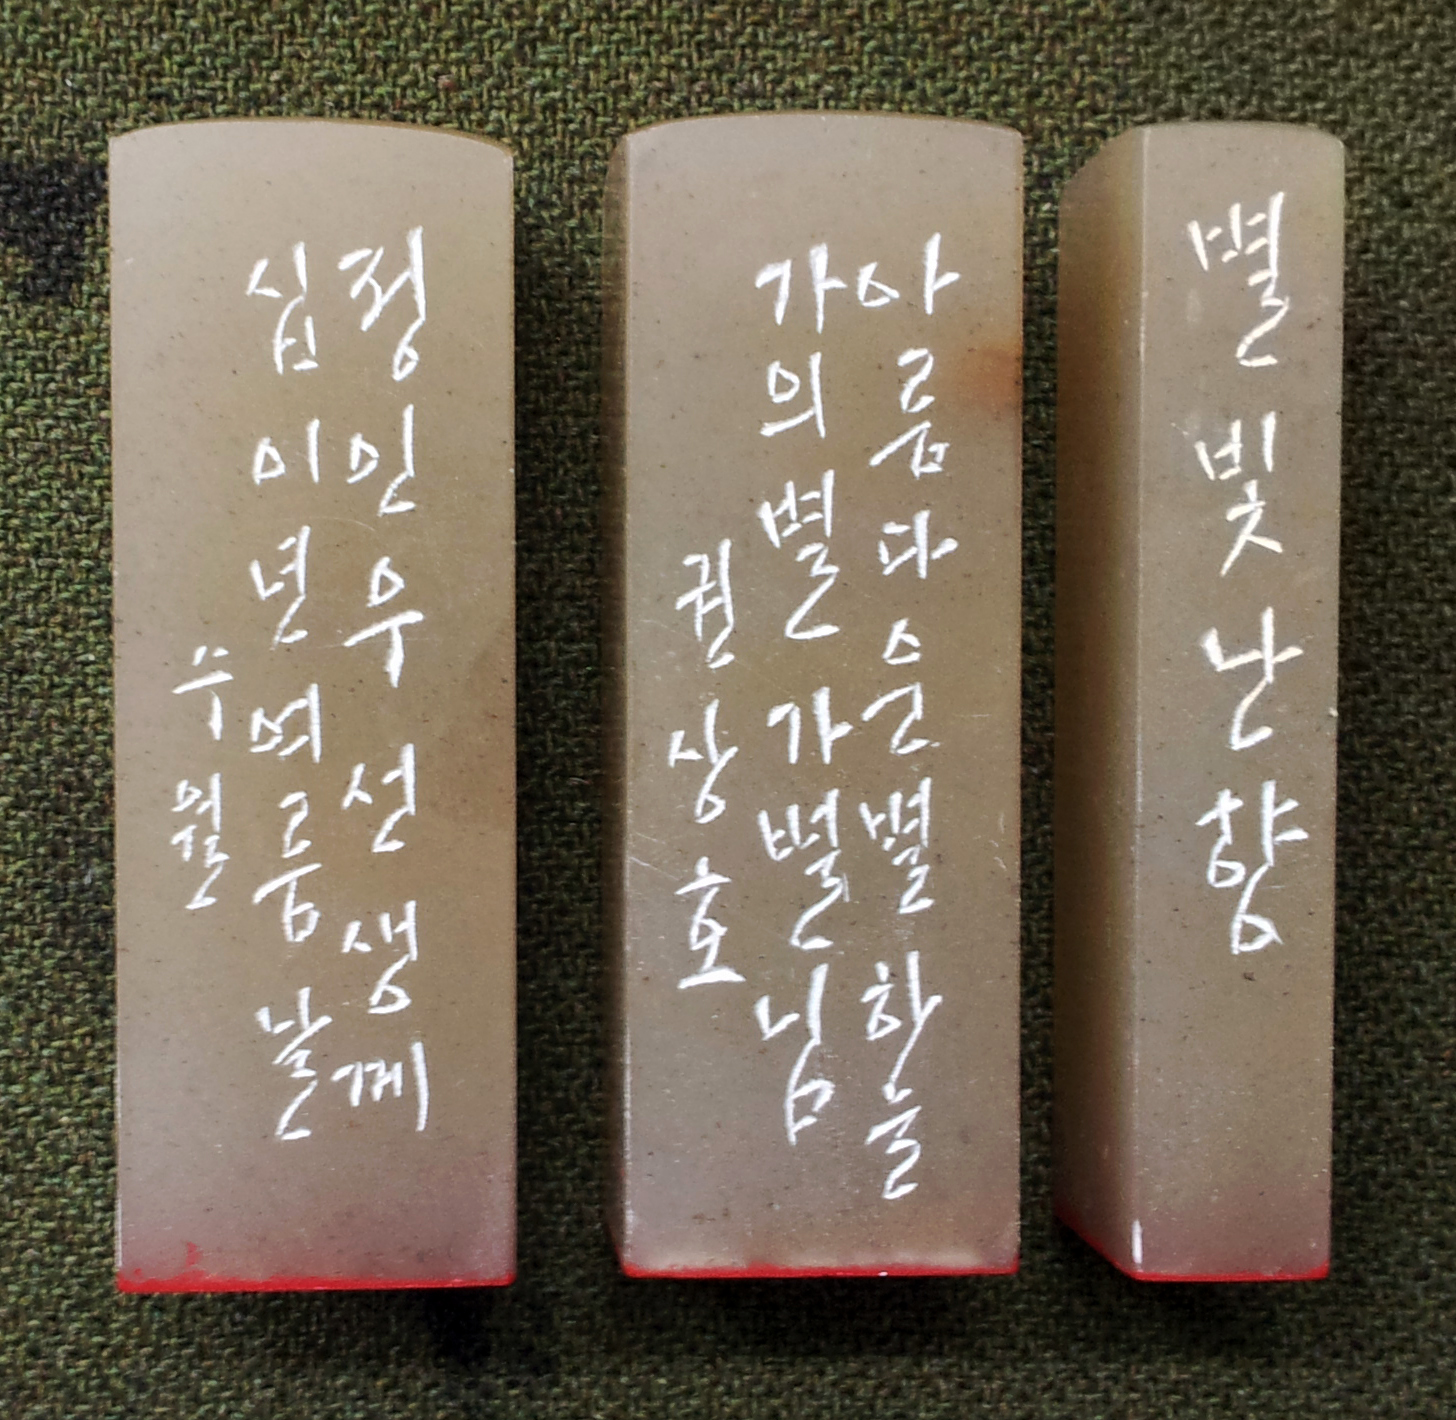 별빛난향
아름다운별하늘
가의별가별님
권상호
정인우선생께
십이년여름날
수월